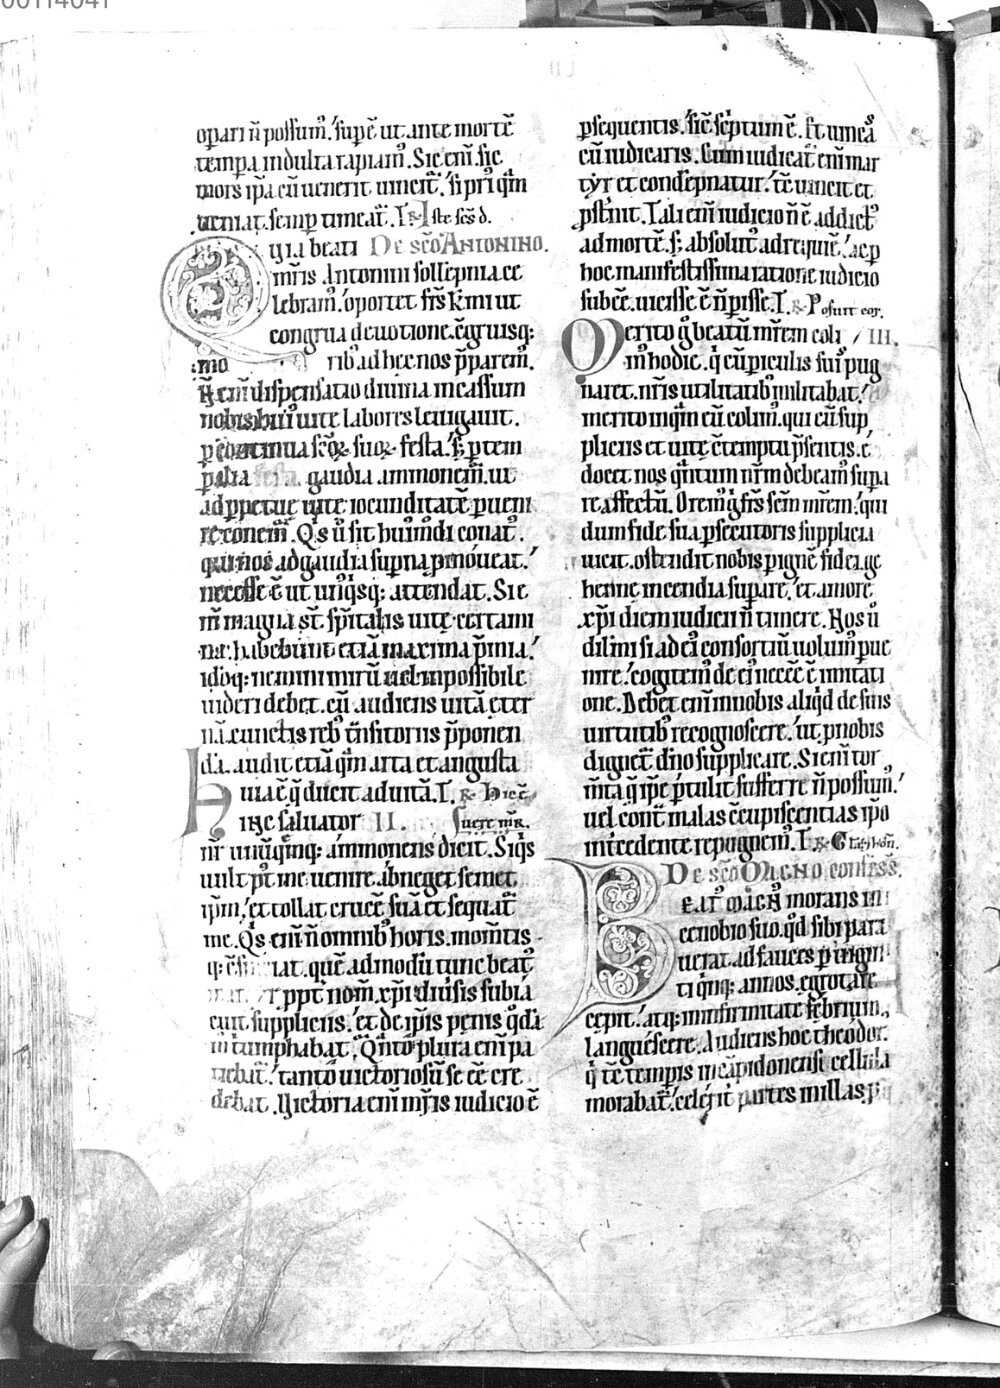 00114041
opari n̄ possum᷑. sup̄e ut ante mortē
tempora indulta rapiam᷑. Sic eni᷑ sic
mors ip̄a cū uenerit uincit᷑. si pri᷑ q᷑m
ueniat. semp timeat᷑. I. ℟ Iste sc̄s d.
Quia beati De sc̄o Antonino.
mr̄is Antonini sollēpnia ce
lebram᷑. oportet fr̄s km̄i ut
congrua deuotione. c̄gruisq;
mo rib᷑ ad hec nos p̄parem᷑.
N̄ eni᷑ dispensatio diuina incassum
nobis hui᷑ uite labores leuigauit.
p continua sc̄oꝝ suoꝝ festa. S; p tem
palia gaudia ammonem᷑. ut
ad ppetue uite iocunditatē pueni
re conem᷑. Qs ū sit hui᷑ mōdi conat᷑.
qui nos ad gaudia supna pmoueat.
necesse ē ut un᷑q᷑sq; attendat. Sic
ni᷑ magna st̄ sp̄italis uite certami
na. habebunt etiā maxima p̄mia.
idoq; nemini mirū uel impossibile
uideri debet. cū audiens uitā eter
nā cunctis reb᷑ t᷑nsitoriis p̄ponen
dā. audit etiā q᷑m arta et angusta
uia ē q̄ ducit ad uitā. I. ℟ Hic ē
Hinc saluator II. fuere mr̄.
nr̄ unūq᷑nq; ammonens dicit. Siq᷑s
uult p᷑t me uenire. abneget semet
ip̄m. et tollat crucē suā et sequat᷑
me. Qs eni᷑ n̄ omnib᷑ horis. momtis
q; quē admodū tunc beat᷑
ppt᷑ nom᷑ xp̄i diu᷑sis subia
cuit suppliciis. et de ip̄is penis q᷑dā
m̄ triumphabat. Q᷑nto plura eni᷑ pa
tiebat᷑. tanto uictoriosū se eē cre
debat. Victoria eni᷑ mr̄is iudicio ē
psequentis. sic̄ sc̄ptum ē. Et uincas᷑
cū iudicaris. Cum iudicat᷑ eni᷑ mar
tyr et condēpnatur. tc̄ uincit et
pst᷑nit. Tali eni᷑ iudicio n̄ ē addict᷑
ad mortē. s; absolut᷑ ad requiē. ac p
hoc manifestissima ratione iudicio
subēe. uicisse ē n̄ pisse. I. ℟ Posuit cor.
Merito g᷑ beatū mr̄em coli III.
m᷑ hodie. q᷑ cū piculis sui᷑ pug
naret. nr̄is utilitatib᷑ militabat.
merito inq᷑m eū colim᷑. qui cū sup
pliciis et uite c̄temptu p̄sentis. ē
docet nos q᷑ntum nr̄m debeam᷑ supa
re affectū. Orem᷑ g᷑ fr̄s sc̄m mr̄em. qui
dum fide sua psecutoris supplicia
uicit. ostendit nobis p igne᷑ fidei. ge
henne incendia supare. et amore
xp̄i diem iudicii n̄ timere. Nos ū
dil̄mi si ad ei᷑ consortiū uolum᷑ pue
nire. cogitem᷑ de ei᷑ necēe ē imitati
one. Debet eni᷑ in nobis aliq᷑d de suis
uirtutib᷑ recognoscere. ut p nobis
dignet᷑ dn̄o supplicare. Sic ni᷑ tor
m̄ta q᷑ ip̄e p᷑tulit sufferre n̄ possum᷑.
uel cont᷑ malas c̄cupiscentias ip̄o
int᷑cedente repugnem᷑. I. ℟
De sc̄o Magno confess.
Beat᷑ Magn᷑ morans in
cenobio suo. qd̄ sibi para
uerat ad fauces p uigin
ti q᷑nq; annos. egrotare
cepit. atq; in infirmitate febrium
languescere. Audiens hoc theodor᷑
q᷑ tc̄ tempis in cāpidonensi cellula
morabat᷑. celerit᷑ partes millas